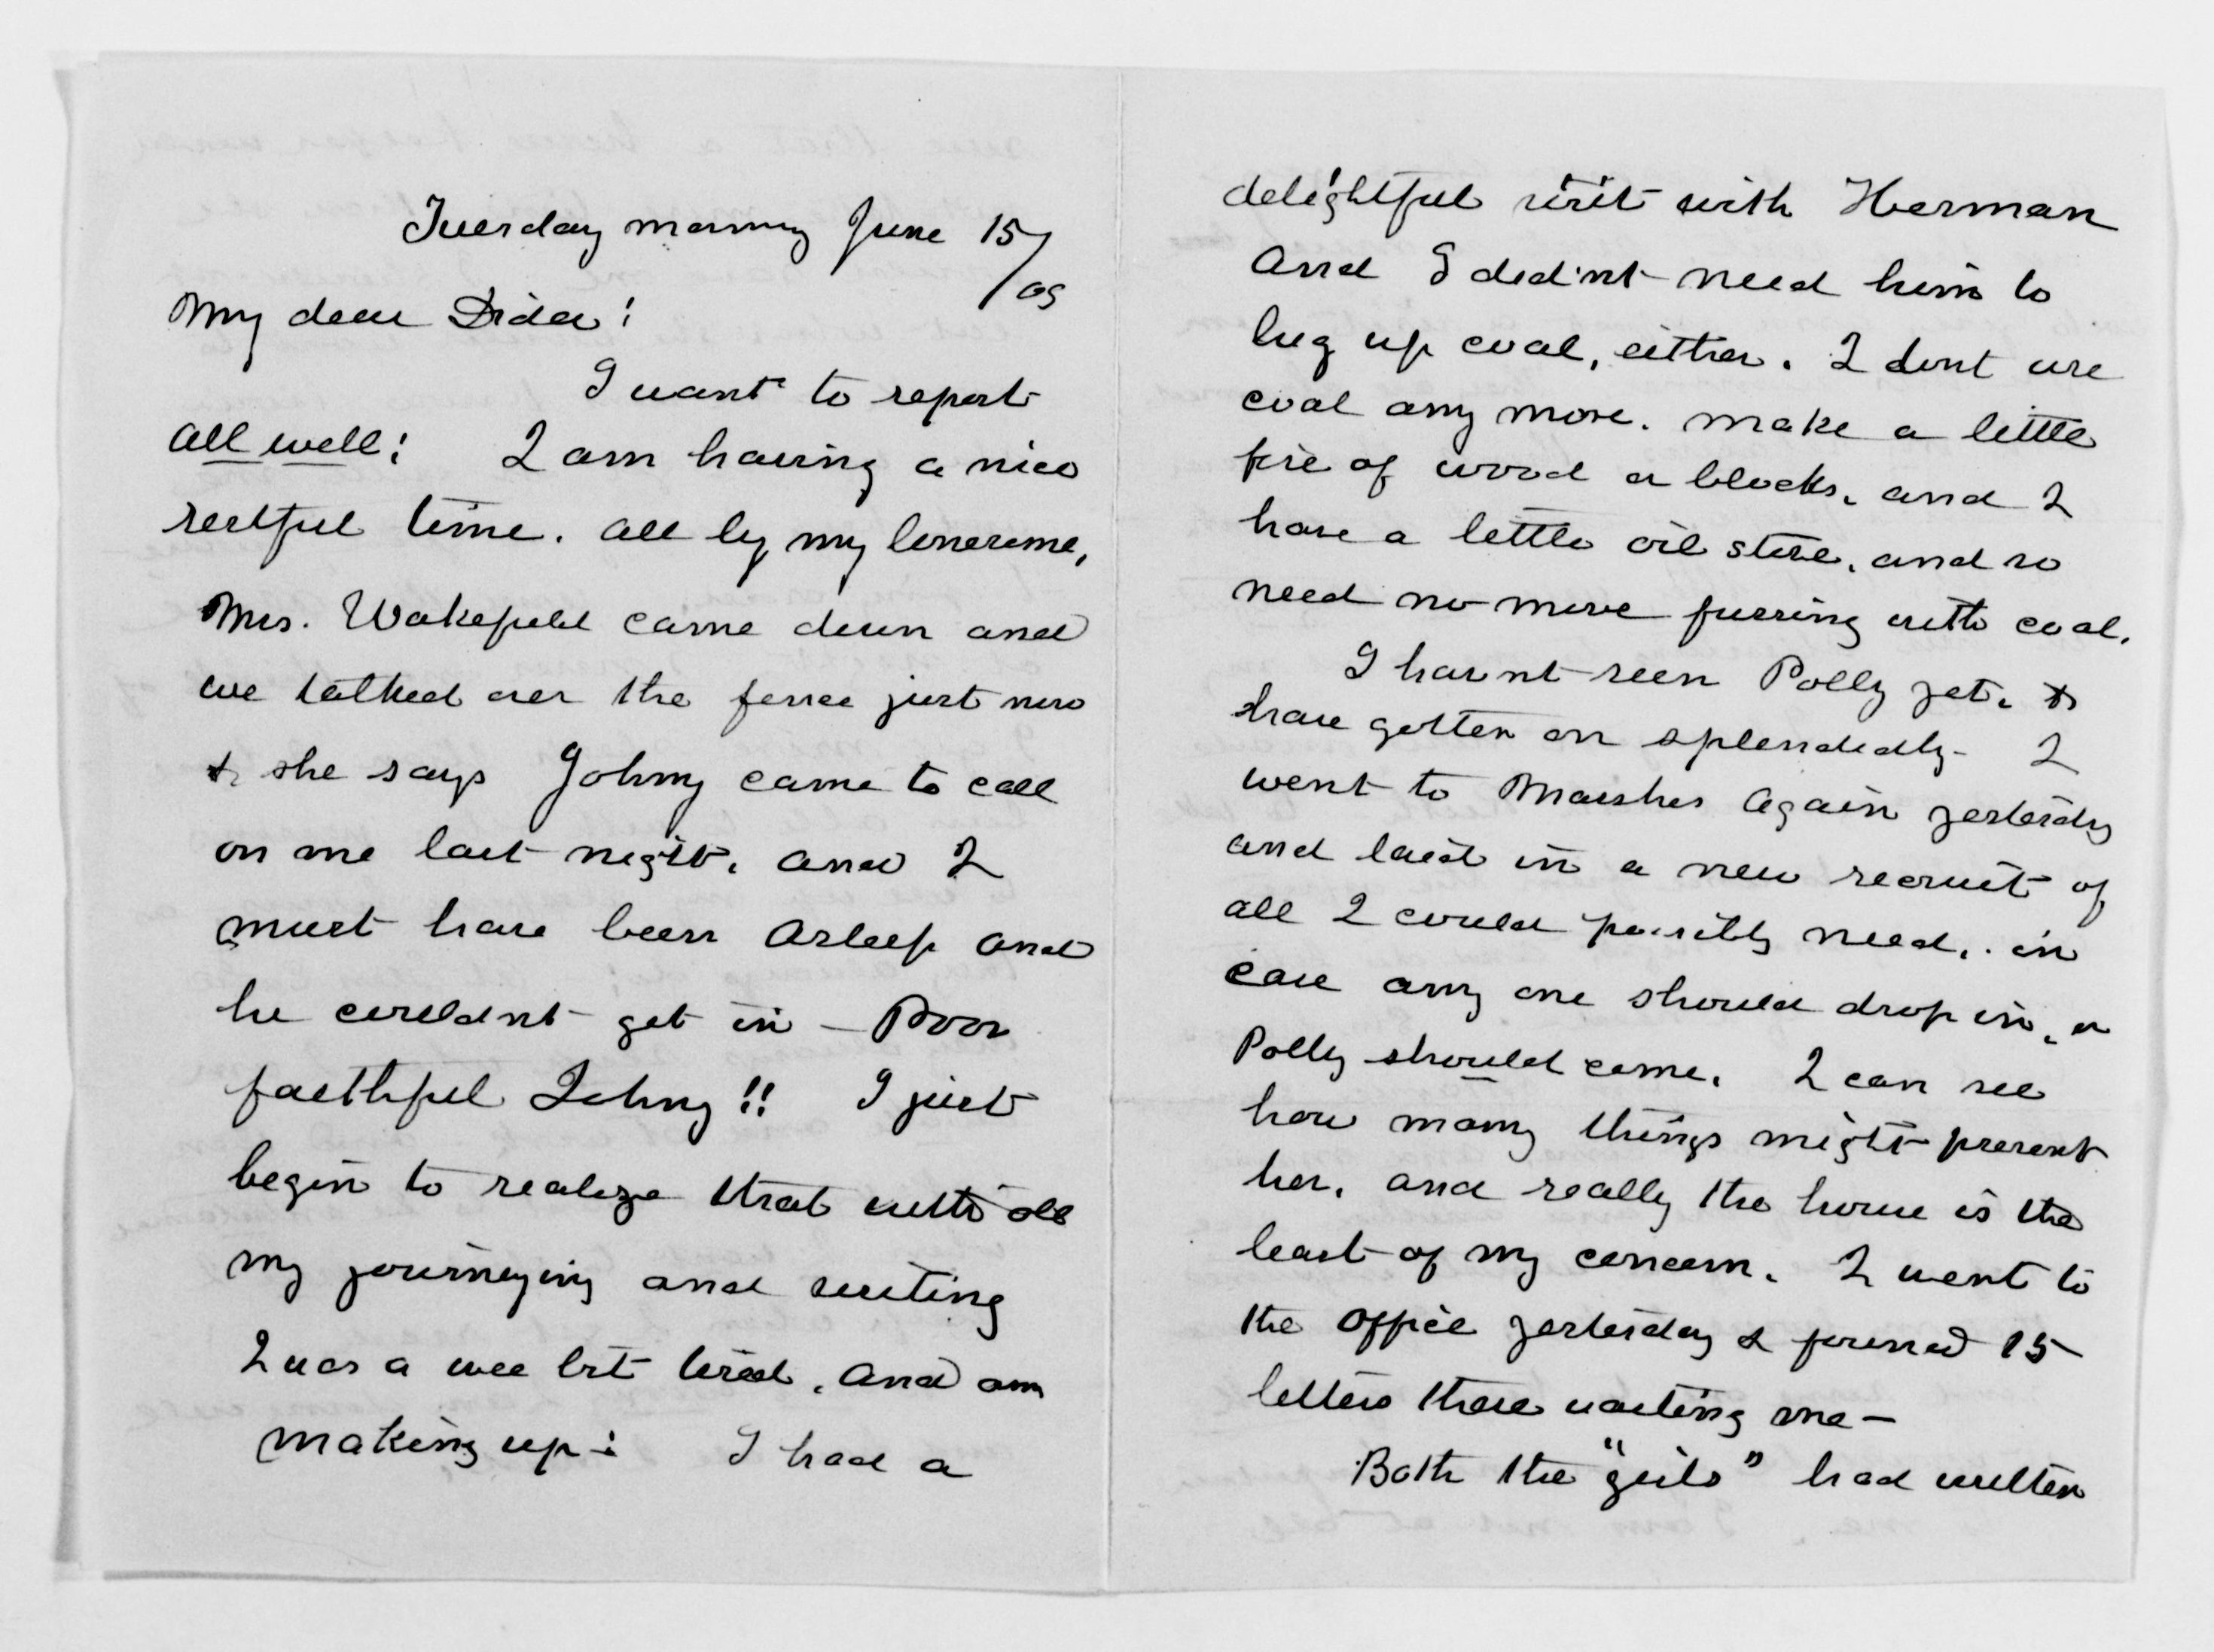 Tuesday morning June 15/09
My dear Dida!
I want to report
all well! I am having a nice
restful time. all by my lonesome,
Mrs. Wakefield came down and
we talked over the fence just now
& she says Johny came to call
on me last night. and I
must have been asleep and
he couldnt get in — Poor
faithful Johny!! I just
begin to realize that with all
my journeying and writing
I was a wee bit tired. and am
making up! I had a
delightful visit with Herman
and I did'nt need him to
lug up coal, either. I dont use
coal any more. make a little
fire of wood or blocks. and I
have a little oil stove. and so
need no more fussing with coal.
I havnt seen Polly yet. &
have gotten on splendidly — I
went to Marshes again yesterday
and laid in a new recruit of
all I could possibly need. in
case any one should drop in. or
Polly should come. I can see
how many things might prevent
her. and really the house is the
least of my concern. I went to
the office yesterday & found 15
letters there waiting me —
Both the "girls" had written